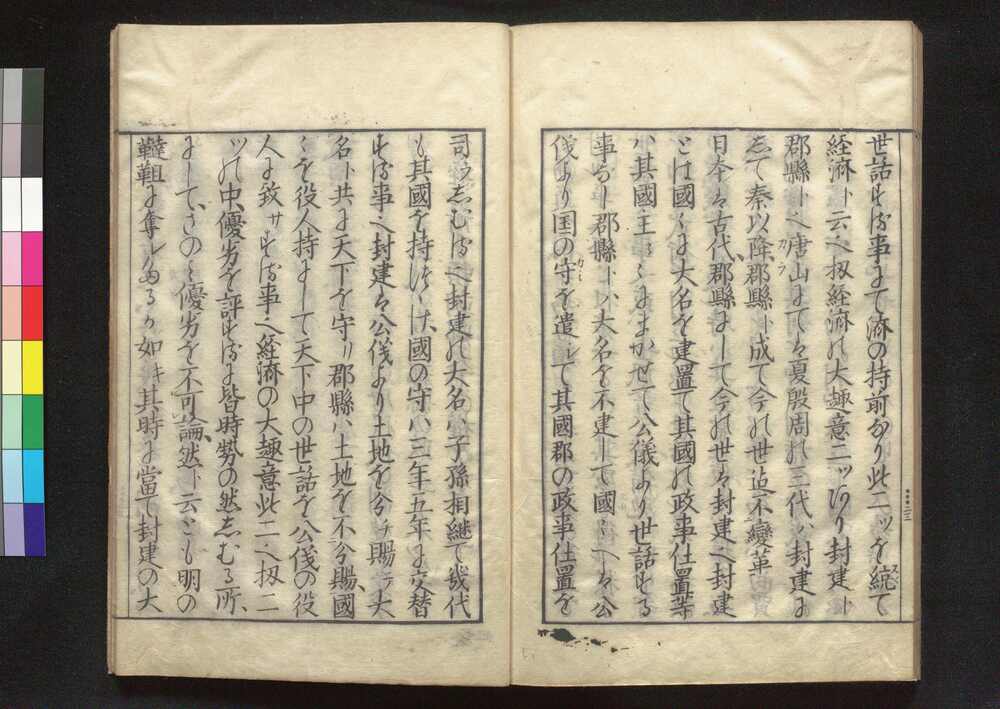 世話する事にて済の持前なり此二ツを統て
経済ト云へ扨経済の大趣意二ツあり封建ト
郡縣トへ唐山にてハ夏殷周の三代ハ封建に
して秦以降郡縣ト成て今の世迄不變革
日本ハ古代郡縣にして今の世ハ封建へ封建
とは國々に大名を建置て其國の政事仕置等
ハ其國主〳〵にまかせて公儀より世話する
事なし郡縣トハ大名を不建して國々へハ公
儀より国の守を遣して其國郡の政事仕置を
司ラしむるへ封建の大名ハ子孫相継て幾代
も其國を持なれ𪜈國の守ハ三年五年に交替
する事へ封建ハ公儀より土地を分チ賜テ大
名ト共に天下を守リ郡縣ハ土地を不分賜國
々を役人持にして天下中の世話を公儀の役
人に致サする事へ経済の大趣意此二へ扨二
ツの中優劣を評するに皆時勢の然しむる所
にして、さのミ優劣を不可論然ト云とも明の
韃靼に奪ルゝか如キ其時に當て封建の大